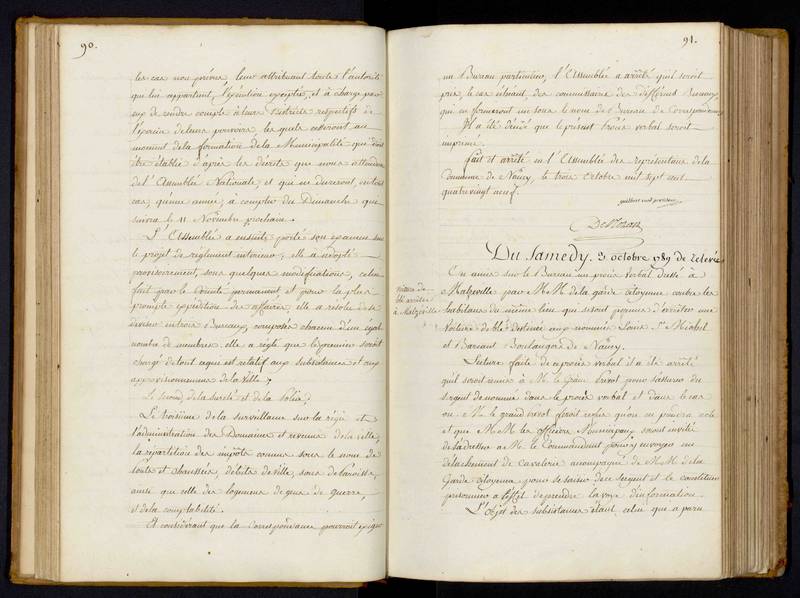 90.
les cas non prévus, leur attribuant toute l'autorité
qui lui appartient, l'exécution exceptée, et à charge pour
eux de rendre compte à leurs Districts respectifs de
l'exercice de leurs pouvoirs, les quels cesseront au
moment de la formation de la Municipalité qui doit
être établie d'après les décrets que nous attendons
de l'Assemblée Nationale, et que ne dureront, en tout
cas, qu'une année, à compter du Dimanche qui
suivra le 11 Novembre prochain.
L'Assemblée a ensuite porté son examen sur
le projet de réglement intérieur; elle a adopté
provisoirement, sous quelques modifications, celui
fait par le Comité permanent, et pour la plus
prompte expédition des affaires, elle a résolu de se
diviser en trois Bureaux, composés chacun d'un égal
nombre de membres. elle a réglé que le premier seroit
chargé de tout ce qui est relatif aux subsistances et aux
approvisionnemens de la Ville;
Le second, de la sureté et de la Police;
Le troisième de la surveillance sur la régie et
l'administration des Domaines et revenus de la ville,
la répartition des impôts connus sous le nom de
ponts et chaussées, débits de ville, sous de Paroisse,
ainsi que celle des logemens de gens de guerre,
et de la comptabilité.
Et considérant que la Correspondance pourroit exiger
91.
un Bureau particulier, l'Assemblée a arrêté qu'il seroit
pris, le cas échéant des commissaires des différens Bureaux
qui en formeront un sous le nom de Bureau de Correspondance
Il a été décidé que le présent Procès verbal seroit
imprimé.
Fait et arrêté en l'Assemblée des représentans de la
Commune de Nancy, le trois octobre mil sept cent
quatre vingt neuf.
Du Samedy, 3 octobre 1789 de relevée
voiture de
blé arrêtée
à Malzéville
On a mis sur le Bureau un procès verbal dressé à
Malzéville par MM. de la garde citoyenne contre les
habitans du même lieu qui se sont permis d'arrêter une
Voiture de blé destinée aux nommés Louis, Michel
et Boulangers de Nancy.
Lecture faite de ce procès verbal il a été arrêté
qu'il seroit remis à M. le grand Prévot pour s'assurer du
sergent dénommé dans le procès verbal et dans le cas
ou M. le grand prévot feroit refus qu'on en prendra acte
et que MM. les officiers Municipaux seront invités
de s'adresser à M. le Commandant pour envoyer un
détachement de Cavalerie accompagné de MM. de la
Garde citoyenne pour se saisir dece sergent et le constituer
prisonnier à l'effet de prendre la voye d'information.
L'objet des subsistances étant celui qui a paru